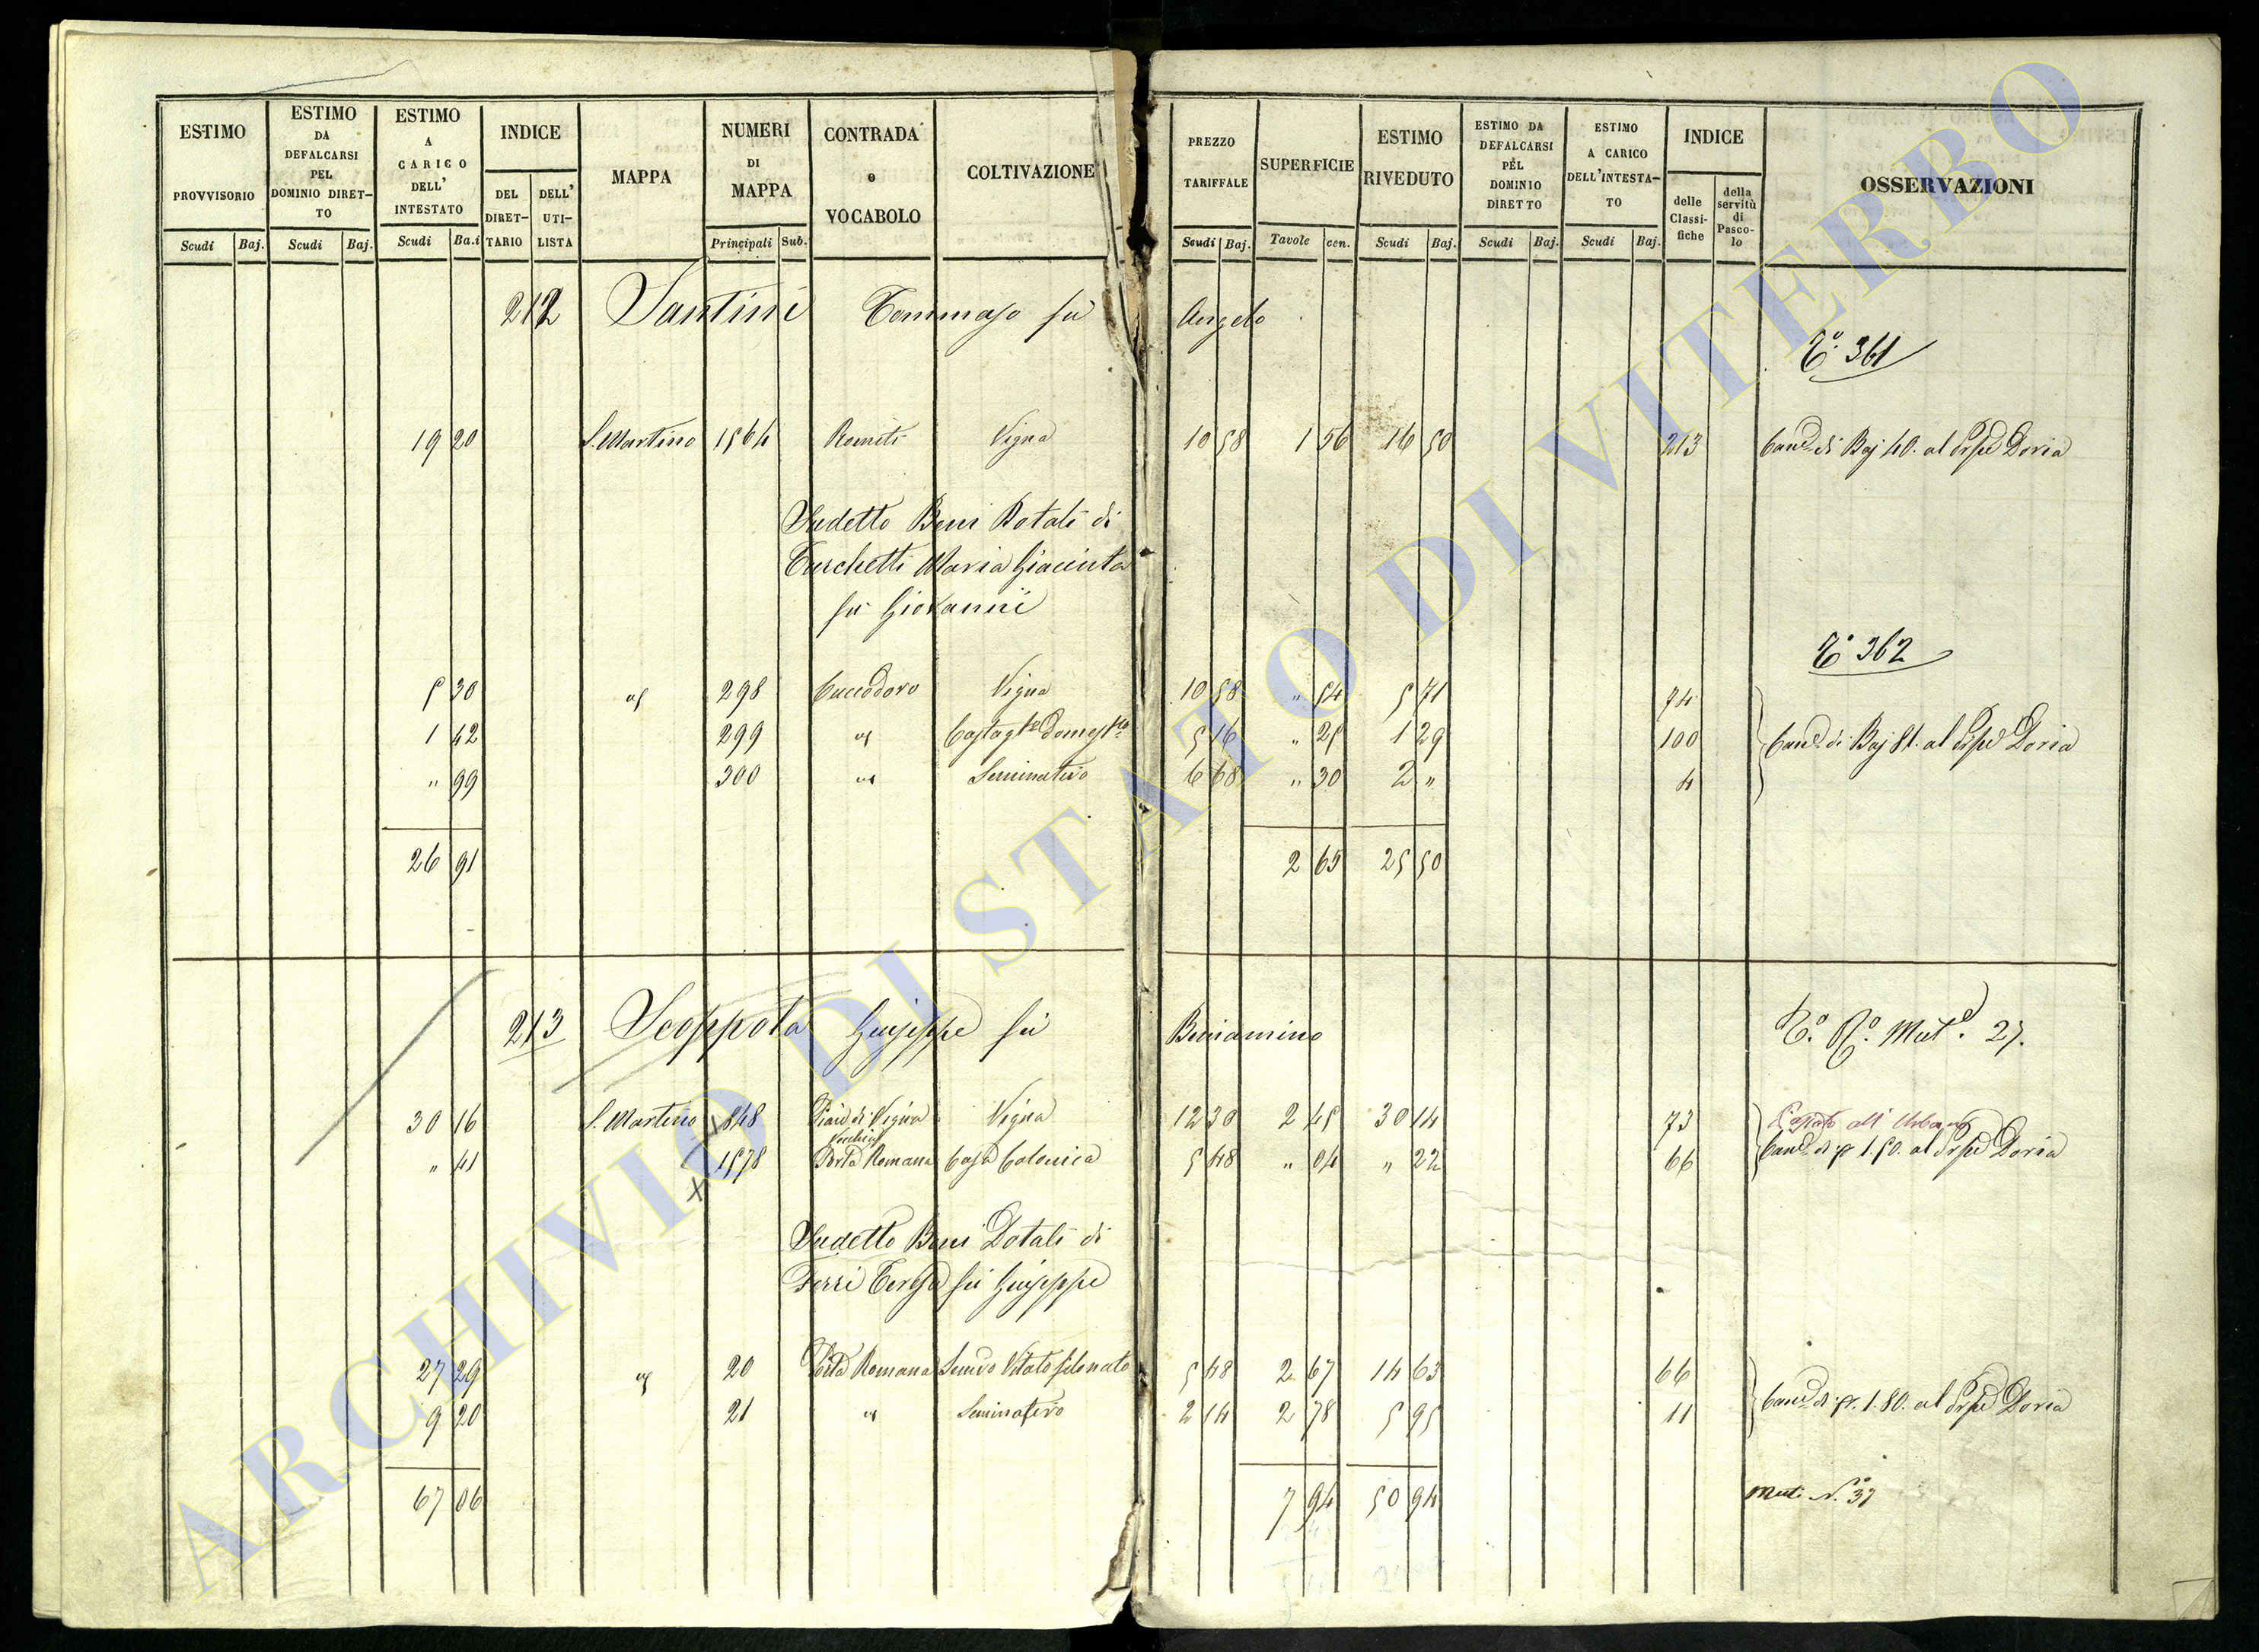 ESTIMO PROVVISORIO
ESTIMO DA DEFALCARSI PEL DOMINIO DIRET-TO
ESTIMO A CARICO DELL' INTESTATO
INDICE
DEL DIRET-TARIO
DELL' UTI-LISTA
MAPPA
NUMERI DI MAPPA
CONTRADA o VOCABOLO
COLTIVAZIONE
PREZZO TARIFFALE
SUPERFICIE
ESTIMO RIVEDUTO
ESTIMO DA DEFALCARSI PEL DOMINIO DIRETTO
ESTIMO A CARICO DELL'INTESTA-TO
INDICE
delle Classi-fiche
della servitù di Pasco-lo
OSSERVAZIONI
Scudi Baj. Scudi Baj. Scudi Ba.i Principali Sub. Scudi Baj. Tavole cen. Scudi Baj. Scudi Baj. Scudi Baj.
212 Santini Tommaso fù Angelo
Tº 361
19 20 S. Martino 1564 Romiti Vigna 10 58 1 56 16 50 213 Canº di Baj 40. al Prpe Doria
Sudetto Beni Dotali di
Turchetti Maria Giacinta
fù Giovanni
Tº 362
5 30 " 298 Cuccodoro Vigna 10 58 " 54 5 71 74
1 42 299 " Castagto Domesto 5 16 " 25 1 29 100 Canº di Baj 81. al Prpe Doria
" 99 300 " Seminativo 6 68 " 30 2 " 4
26 91 2 65 25 50
213 Scoppola Giuseppe fù Beniamino
Tº Rº Mutº. 27.
30 16 S. Martino 848 Piano di Vigna Vecchia Vigna 12 30 2 45 30 14 73 Passato all' Urbano
" 41 1578 Porta Romana Casa Colonica 5 48 " 04 " 22 66 Canº di p 1.50. al Prpe Doria
Sudetto Beni Dotali di
Ferri Teresa fù Giuseppe
27 29 " 20 Porta Romana Semvo Vitato 5 48 2 67 14 63 66
9 20 21 " Seminativo 2 14 2 78 5 95 11 Canº di p. 1.80. al Prpe Doria
67 06 7 94 50 94
Mut. N.º 37
ARCHIVIO DI STATO DI VITERBO